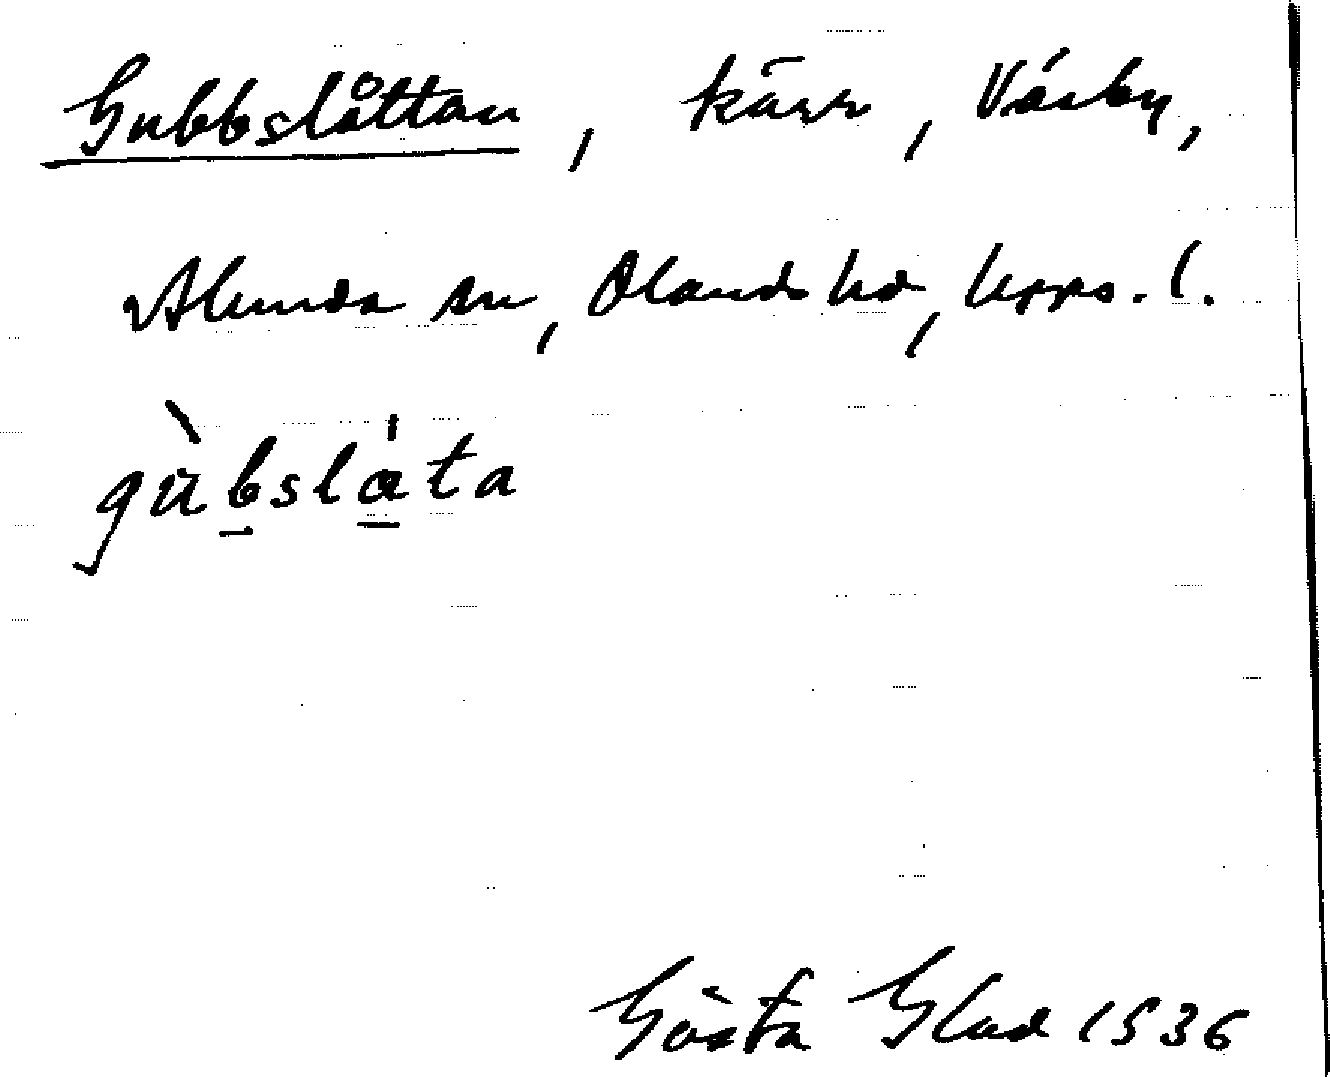 Gubbslåttan, kärr, Väsby,
Alunda sn, Olands hd, Upps. l.
gùbslata
Gösta Glad 1936